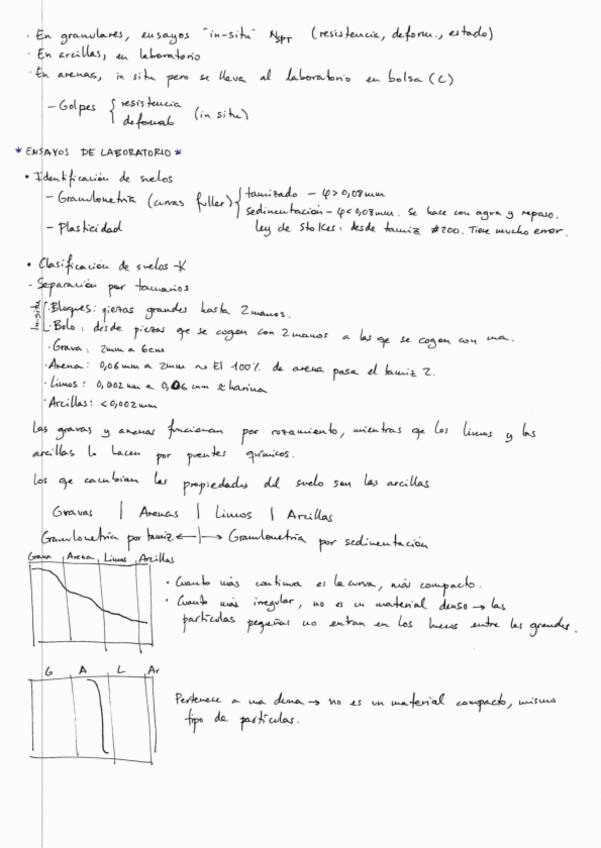 · En granulares, ensayos "in-situ" NSPT (resistencia, deform., estado)
· En arcillas, en laboratorio
· En arenas, in situ pero se lleva al laboratorio en bolsa (C)
- Golpes { resistencia
deformab (in situ)
* ENSAYOS DE LABORATORIO *
• Identificación de suelos
- Granulometría (curvas fuller) { tamizado - φ > 0,08mm
sedimentación - φ < 0,08mm. Se hace con agua y reposo.
- Plasticidad ley de Stokes: desde tamiz #200. Tiene mucho error.
• Clasificación de suelos
- Separación por tamaños
in-situ
· Bloques: piezas grandes hasta 2 manos.
· Bolo: desde piezas qe se cogen con 2 manos a las qe se cogen con una.
· Grava: 2mm a 6cm
· Arena: 0,06mm a 2mm ~ El 100% de arena pasa el tamiz 2.
· Limos: 0,002mm a 0,06mm ≈ harina
· Arcillas: <0,002mm
Las gravas y arenas funcionan por rozamiento, mientras qe los limos y las
arcillas lo hacen por puentes químicos.
Los qe cambian las propiedades del suelo son las arcillas
Gravas | Arenas | Limos | Arcillas
Granulometría por tamiz ←|→ Granulometría por sedimentación
Grava Arena Limos Arcillas
• Cuanto más continua es la curva, más compacto.
• Cuanto más irregular, no es un material denso → las
partículas pequeñas no entran en los huecos entre las grandes.
G A L Ar
Pertenece a una duna → no es un material compacto, mismo
tipo de partículas.